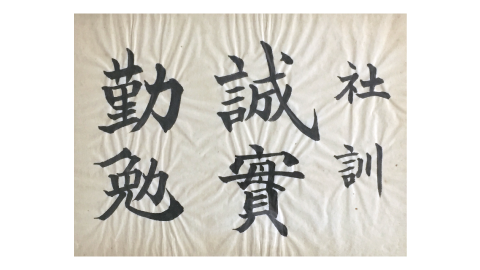 社訓
誠實
勤勉